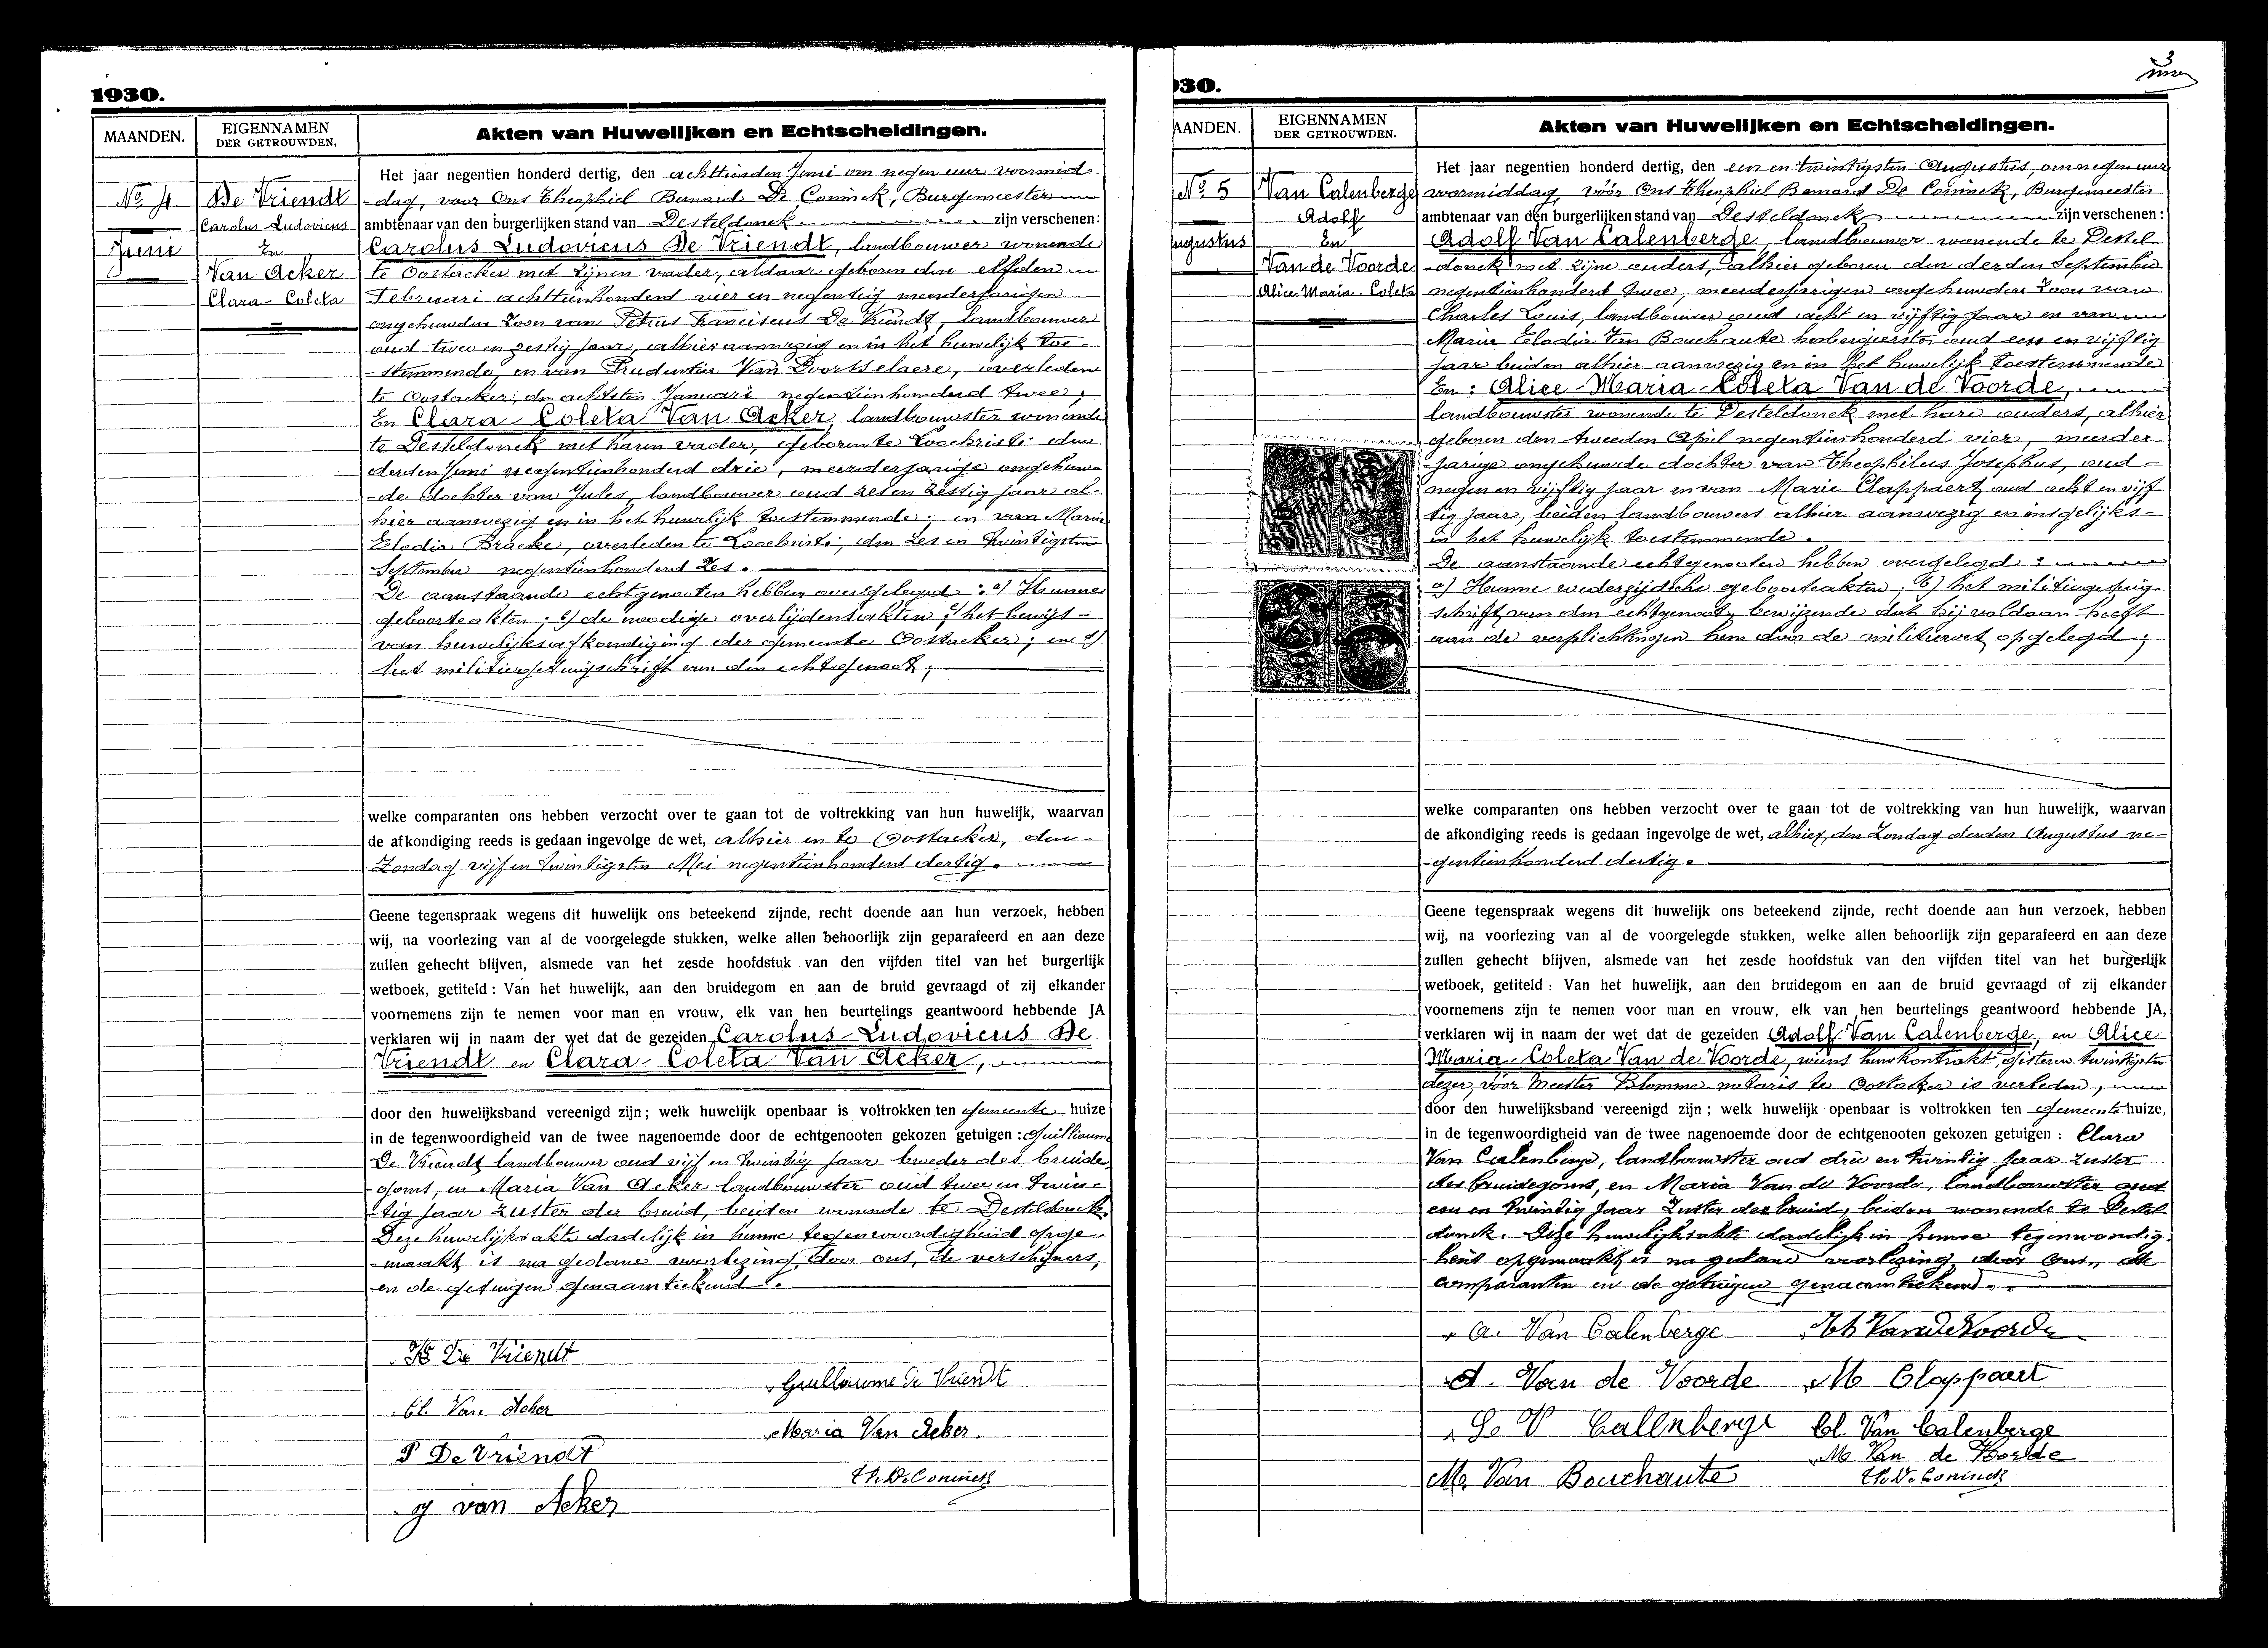 1930.
MAANDEN.
EIGENNAMEN
DER GETROUWDEN.
Akten van Huwelijken en Echtscheidingen.
No. 4.
Juni
De Vriendt
Carolus-Ludovicus
En
Van Acker
Clara-Coleta
Het jaar negentien honderd dertig, den achttienden Juni om negen uur voormid-
-dag, voor Ons Theophiel Bernard De Coninck, Burgemeester
ambtenaar van den burgerlijken stand van Desteldonck zijn verschenen:
Carolus Ludovicus De Vriendt, landbouwer wonende
te Oostacker met zijnen vader, aldaar geboren den elfden
Februari achttienhonderd vier en negentig, meerderjarigen
ongehuwden zoon van Petrus Franciscus De Vriendt, landbouwer
oud twee en zestig jaar, alhier aanwezig en in het huwelijk toe-
-stemmende, en van Prudentia Van Doorsselaere, overleden
te Oostacker, den achtsten Januari negentienhonderd twee;
En Clara-Coleta Van Acker, landbouwster wonende
te Desteldonck met haren vader, geboren te Loochristi den
derden Juni negentienhonderd drie, meerderjarige ongehuw-
-de dochter van Jules, landbouwer oud zes en zestig jaar al-
hier aanwezig en in het huwelijk toestemmende; en van Maria
Elodia Bracke, overleden te Loochristi, den zes en twintigsten
September negentienhonderd zes.
De aanstaande echtgenooten hebben overgelegd: a) Hunne
geboorteakten; b) de noodige overlijdensakten; c) het bewijs-
van huwelijksafkondiging der gemeente Oostacker; en d)
het militiegetuigschrift van den echtgenoot;
welke comparanten ons hebben verzocht over te gaan tot de voltrekking van hun huwelijk, waarvan
de afkondiging reeds is gedaan ingevolge de wet, alhier en te Oostacker, den-
Zondag vijf en twintigsten Mei negentienhonderd dertig.
Geene tegenspraak wegens dit huwelijk ons beteekend zijnde, recht doende aan hun verzoek, hebben
wij, na voorlezing van al de voorgelegde stukken, welke allen behoorlijk zijn geparafeerd en aan deze
zullen gehecht blijven, alsmede van het zesde hoofdstuk van den vijfden titel van het burgerlijk
wetboek, getiteld: Van het huwelijk, aan den bruidegom en aan de bruid gevraagd of zij elkander
voornemens zijn te nemen voor man en vrouw, elk van hen beurtelings geantwoord hebbende JA
verklaren wij in naam der wet dat de gezeiden Carolus-Ludovicus De
Vriendt en Clara-Coleta Van Acker,
door den huwelijksband vereenigd zijn; welk huwelijk openbaar is voltrokken ten gemeente huize
in de tegenwoordigheid van de twee nagenoemde door de echtgenooten gekozen getuigen: Guillaume
De Vriendt landbouwer oud vijf en twintig jaar broeder des bruide-
-goms, en Maria Van Acker landbouwster oud twee en twin-
-tig jaar zuster der bruid, beiden wonende te Desteldonck.
Deze huwelijksakte dadelijk in hunne tegenwoordigheid opge-
-maakt is na gedane voorlezing, door ons, de verschijners,
en de getuigen genaamteekend.
De Vriendt
Guillaume De Vriendt
Cl. Van Acker
Maria Van Acker.
P De Vriendt
Th. De Coninck
J van Acker
3
030.
AANDEN.
EIGENNAMEN
DER GETROUWDEN.
Akten van Huwelijken en Echtscheidingen.
No. 5
ugustus
Van Calenberge
Adolf
En
Van de Voorde
Alice Maria-Coleta
Het jaar negentien honderd dertig, den een en twintigsten Augustus, om negen uur
voormiddag, vóór Ons Theophiel Bernard De Coninck, Burgemeester
ambtenaar van den burgerlijken stand van Desteldonck zijn verschenen:
Adolf Van Calenberge, landbouwer wonende te Destel-
-donck met zijne ouders, alhier geboren den derden September
negentienhonderd twee, meerderjarigen ongehuwden zoon van
Charles Louis, landbouwer oud acht en vijftig jaar en van
Maria Elodia Van Bouchaute herbergierster oud een en vijftig
jaar beiden alhier aanwezig en in het huwelijk toestemmende
En: Alice-Maria-Coleta Van de Voorde,
landbouwster wonende te Desteldonck met hare ouders, alhier
geboren den tweeden April negentienhonderd vier, meerder-
-jarige ongehuwde dochter van Theophilus Josephus, oud-
negen en vijftig jaar en van Marie Clappaert oud acht en vijf-
tig jaar, beiden landbouwers alhier aanwezig en insgelijks-
in het huwelijk toestemmende.
De aanstaande echtgenooten hebben overgelegd:
a) Hunne wederzijdsche geboorteakten; b) het militiegetuig-
schrift van den echtgenoot, bewijzende dat hij voldaan heeft
aan de verplichtingen hem door de militiewet opgelegd;
250
250
welke comparanten ons hebben verzocht over te gaan tot de voltrekking van hun huwelijk, waarvan
de afkondiging reeds is gedaan ingevolge de wet, alhier, den Zondag derden Augustus ne-
-gentienhonderd dertig.
Geene tegenspraak wegens dit huwelijk ons beteekend zijnde, recht doende aan hun verzoek, hebben
wij, na voorlezing van al de voorgelegde stukken, welke allen behoorlijk zijn geparafeerd en aan deze
zullen gehecht blijven, alsmede van het zesde hoofdstuk van den vijfden titel van het burgerlijk
wetboek, getiteld: Van het huwelijk, aan den bruidegom en aan de bruid gevraagd of zij elkander
voornemens zijn te nemen voor man en vrouw, elk van hen beurtelings geantwoord hebbende JA,
verklaren wij in naam der wet dat de gezeiden Adolf Van Calenberge, en Alice
Maria-Coleta Van de Voorde, wiens huwkontrakt, gisteren twintigsten
dezer, vóór Meester Blomme notaris te Oostacker is verleden,
door den huwelijksband vereenigd zijn; welk huwelijk openbaar is voltrokken ten gemeente huize,
in de tegenwoordigheid van de twee nagenoemde door de echtgenooten gekozen getuigen: Clara
Van Calenberge, landbouwster oud drie en twintig jaar zuster
des bruidegoms, en Maria Van de Voorde, landbouwster oud
een en twintig jaar zuster der bruid, beiden wonende te Destel-
donck. Deze huwelijksakte dadelijk in hunne tegenwoordig-
heid opgemaakt is na gedane voorlezing, door ons, de
comparanten en de getuigen genaamteekend.
A. Van Calenberge
Th Van de Voorde
A. Van de Voorde
M Clappaert
V Calenberge
Cl. Van Calenberge
M. Van de Voorde
M. Van Bouchaute
Th. De Coninck